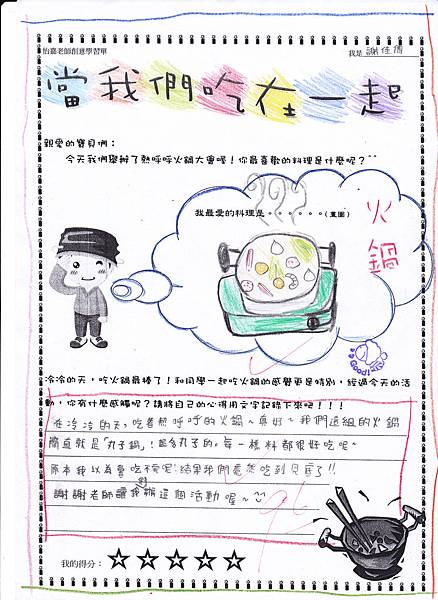 怡嘉老師創意學習單
我是 謝佳倩
當我們吃在一起
親愛的寶貝們：
今天我們舉辦了熱呼呼火鍋大會喔！你最喜歡的料理是什麼呢？^^
我最愛的料理是。。。。。。(畫圖)
火鍋
Good!
冷冷的天，吃火鍋最棒了！和同學一起吃火鍋的感覺更是特別，經過今天的活
動，你有什麼感觸呢？請將自己的心得用文字記錄下來吧！！！
在冷冷的天，吃著熱呼呼的火鍋～真好～我們這組的火鍋
簡直就是「丸子鍋」！超多丸子的，每一樣料都很好吃呢~
原本我以為會吃不完呢！結果我們竟然吃到見底了!!
謝謝老師讓我們辦這個活動喔~
我的得分：☆☆☆☆☆